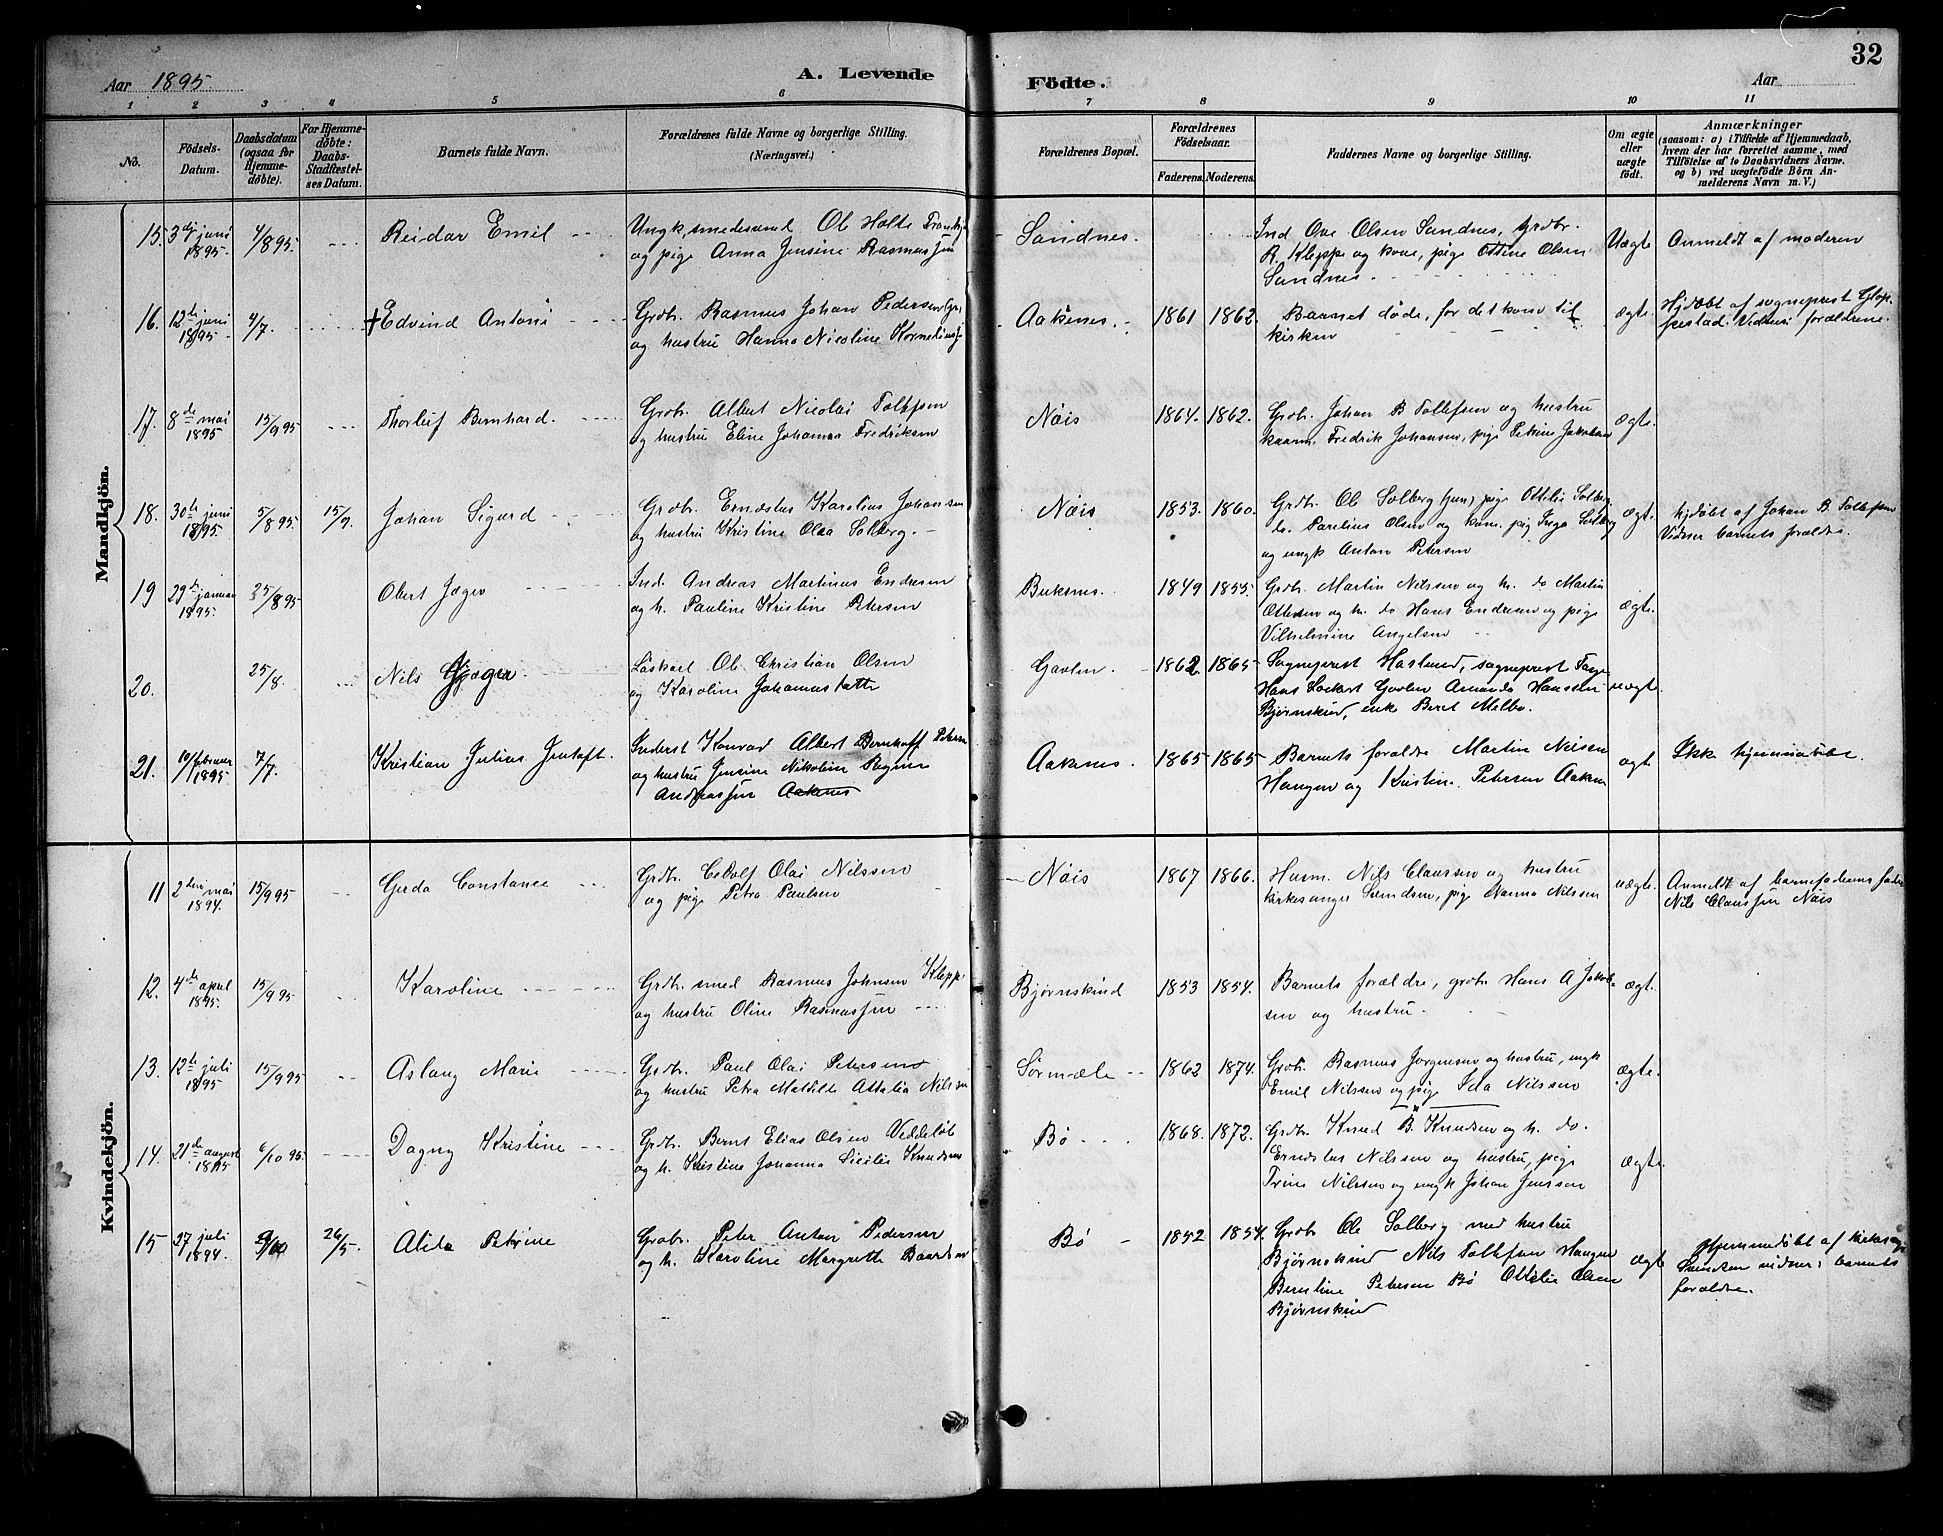 Aar 1895.
A. Levende
Födte.
Aar
32
1 2 3 4 5 6 7 8 9 10 11
No.
Födsels-Datum.
Daabsdatum (ogsaa for Hjemme-döbte).
For Hjemme-döbte: Daabs-Stadfæstel-ses Datum.
Barnets fulde Navn.
Forældrenes fulde Navne og borgerlige Stilling.
(Næringsvei.)
Forældrenes Bopæl.
Forældrenes Födselsaar.
Faderens. Moderens.
Faddernes Navne og borgerlige Stilling.
Om ægte eller uægte födt.
Anmærkninger
(saasom: a) i Tilfælde af Hjemmedaab,
hvem der har forrettet samme, med
Tilföielse af to Daabsvidners Navne.
og b) ved uægtefödte Börn An-
melderens Navn m. V.)
Mandkjön.
15. 3dj juni 1895. 4/8 95. Reidar Emil
Ungk. smedesvend Ole Holte
og pige Anna Jensine Rasmussen
Sandnes.
Ind. Ove Olsen Sandnes, Grdbr.
R. Kleppe og kone, pige Ottine Olsen
Sandnes
Uægte
Anmeldt af moderen
16. 12te juni 1895. 4/7. + Edvind Antoni
Grdb. Rasmus Johan Pedersen
og hustru Hanna Nicoline
Aaknes. 1861 1862.
Barnet døde, før det kom til
kirken
ægte.
Hjdøbt af sogneprest
Vidner: forældrene.
17. 8de mai 1895 15/9 95 Thorleif Bernhard.
Grdb. Albert Nicolai Tollefsen
og hustru Eline Johanna Fredriksen
Nøis 1864. 1862.
Grdb. Johan B Tollefsen og hustru
Fredrik Johansen, pige Petrine Jakobsen
ægte.
18. 30te juni 1895. 5/8 95. 15/9. Johan Sigurd
Grdb. Ernæstus Karolius Johansen
og hustru Kristine Olea Solberg.
Nøis 1853. 1860.
Grdb. Ole Solberg jun, pige Ottelie Solberg
do. Paulius Olsen og kone. pig Inga Solberg
og ungk Anton Petersen
ægte.
hjdøbt af Johan B. Tollefsen
Vidner barnets forældre.
19 29de januar 1895. 25/8 95 Obert Jøger
Ind. Andreas Martinus Endresen
og h. Pauline Kristine Petersen
Buksnes. 1849 1855.
Grdb. Martin Nilssen og h. do Martin
Ottesen og h. do Hans Endresen og pige
Vilhelmine Angelsen
ægte.
20. 25/8. Nils
Løskarl Ole Christian Olsen
og Karoline Johannesdatter
Gavlen. 1862 1865
Sogneprest Haslund, sogneprest
Hans Lockert Gavlen Amanda Hanssen
Bjørnskind, enke Beret Melbo.
uægte.
21. 19/februar 1895 7/7. Kristian Julius Gustaft.
Inderst Konrad Albert Bernhoff Petersen
og hustru Jensine Nikoline Regine
Andreassen Aaknes
Aaknes. 1865 1865
Barnets forældre Martin Nilsen
Haugen og Kristine Petersen Aaknes
ægte
Ikke hjemmedøbt.
Kvindekjön.
11 2den mai 1894. 15/9 95 Gerda Constance
Grdb. Edolf Olai Nilssen
og pige Petra Paulsen
Nøis 1867 1866.
Husm. Nils Claussen og hustru
kirkesanger Svendsen, pige Hanna Nilssen
uægte.
Anmeldt af barnefaderens fader
Nils Claussen Nøis
12. 4de april 1895. 15/9 95 Karoline
Grdb. smed Rasmus Johnsen Klepp
og hustru Oline Rasmussen
Bjørnskind 1853 1854.
Barnets forældre, grdb. Hans A Jakob-
sen og hustru.
ægte.
13. 12te juli 1895 15/9 95 Aslaug Marie
Grdb. Paul Olai Petersen
og hustru Petra Mathilde Attalia Nilssen
Sørmæle 1862 1874.
Grdb. Rasmus Jørgensen og hustru, ungk
Emil Nilssen og pige Ida Nilssen
ægte.
14. 21de august 1895 6/10 95. Dagny Kristine
Grdb. Bernt Elias Olsen
og h. Kristine Johanna Sicilie Knudsen
Bø 1868. 1872.
Grdb. Knud B. Knudsen og h. do.
Ernæstus Nilssen og hustru, pige
Trine Nilssen og ungk Johan Jenssen
ægte.
15 27 juli 1894. 26/5. Alida Petrine
Grdbr. Peter Anton Pedersen
og h. Karoline Margrethe Baardsen
Bø 1852 1854.
Grdb. Ole Solberg med hustru
Bjørnskind Nils Tollefsen Haugen
Berntine Petersen Bø Ottelie Olsen
Bjørnskind
ægte
Hjemmedøbt af kirkesanger
Svendsen vidner: barnets
forældre.